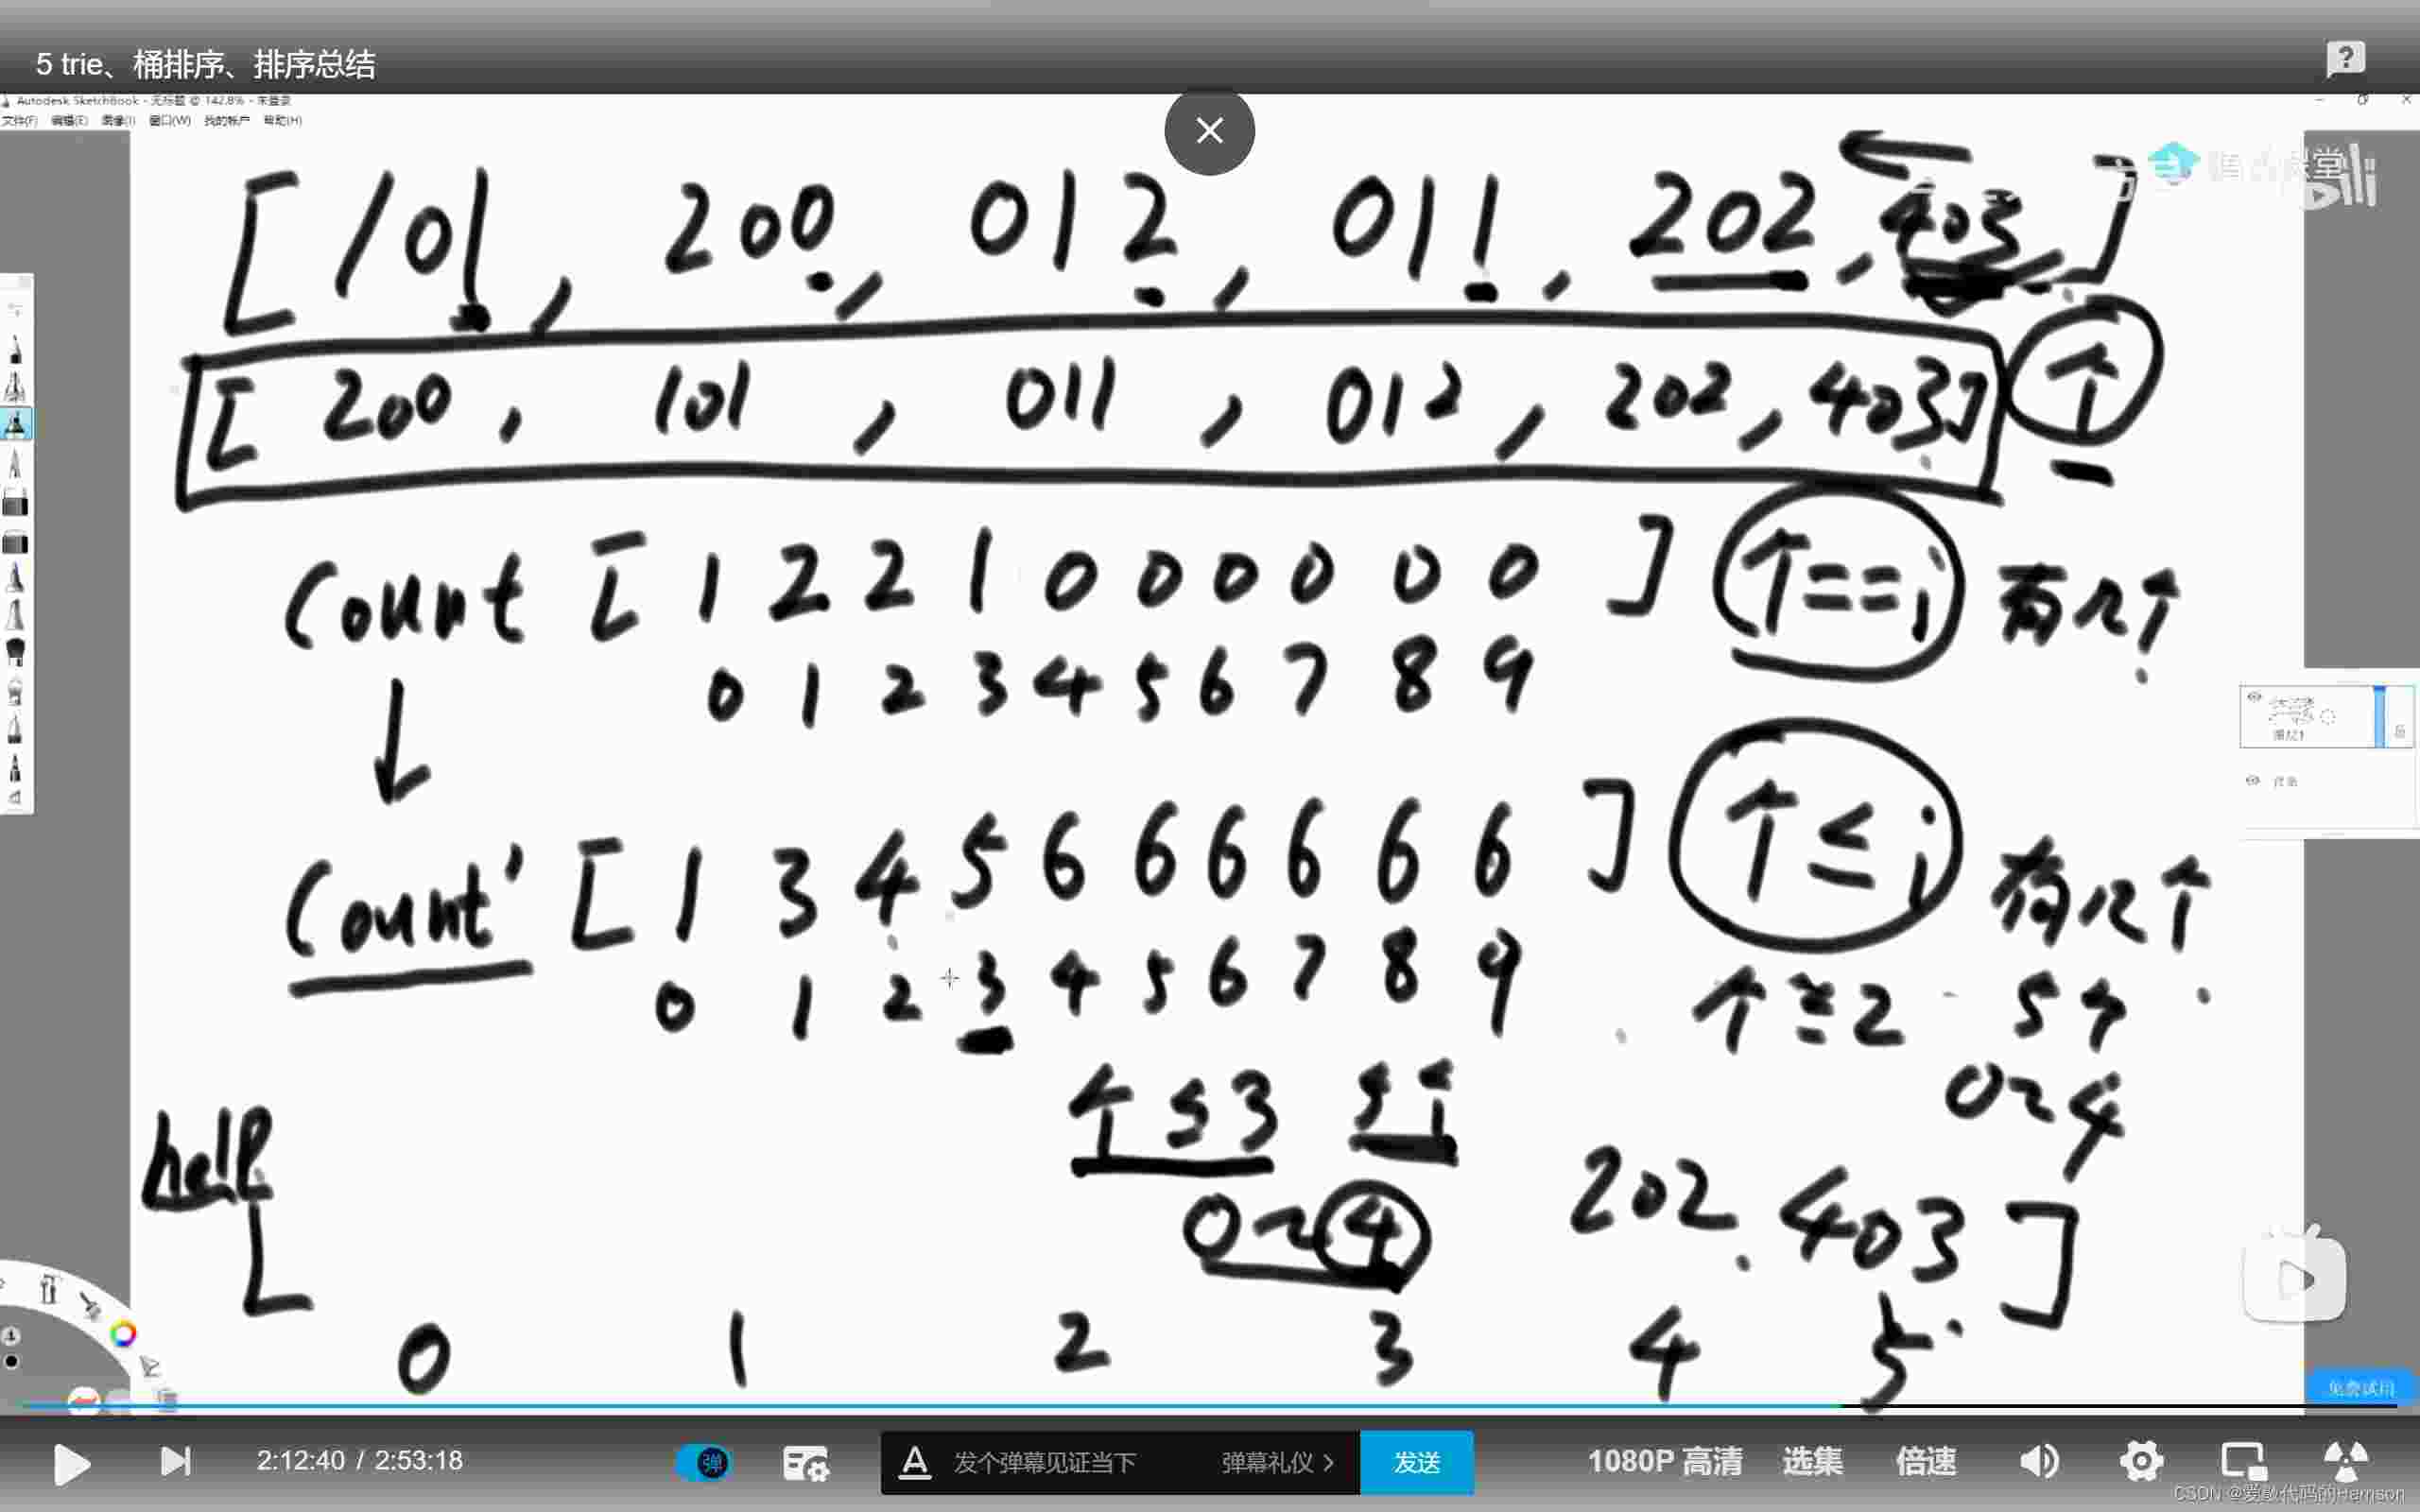 5 trie、桶排序、排序总结
Autodesk SketchBook - 无标题 @ 142.8% - 未登录
文件(F) 编辑(E) 图像(I) 窗口(W) 我的帐户 帮助(H)
[ 101 , 200 , 012 , 011 , 202 , 403, ]
[ 200 , 101 , 011 , 012 , 202 , 403] 个
Count [ 1 2 2 1 0 0 0 0 0 0 ] 个==i 有几个
0 1 2 3 4 5 6 7 8 9
Count' [ 1 3 4 5 6 6 6 6 6 6 ] 个≤i 有几个
0 1 2 3 4 5 6 7 8 9 个≤2 5个
个≤3 5个 0~4
help [ 0~4 202. 403 ]
0 1 2 3 4 5
免费试用
2:12:40 / 2:53:18 弹 发个弹幕见证当下 弹幕礼仪 > 发送 1080P 高清 选集 倍速
CSDN @爱敲代码的Harrison